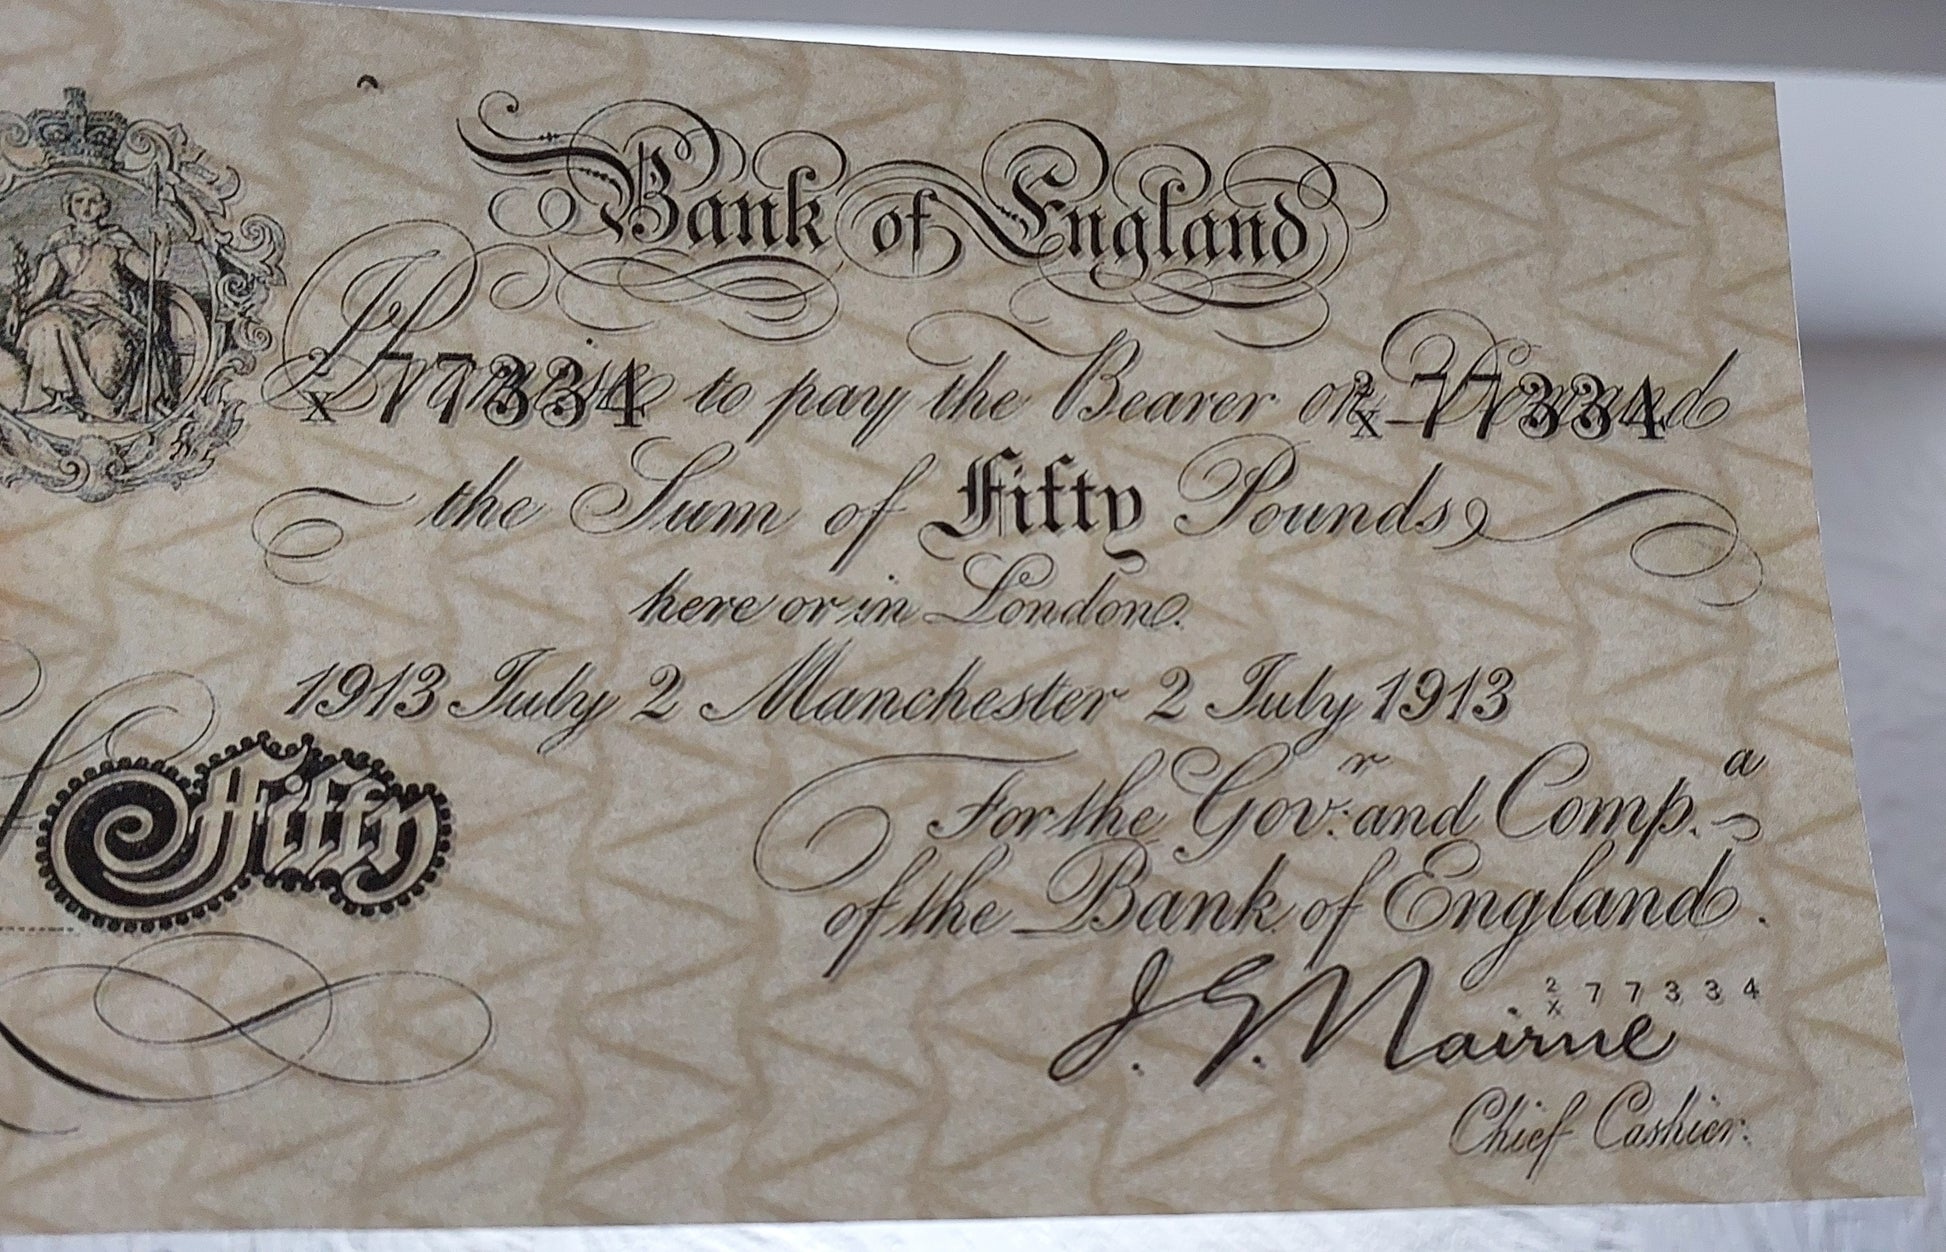 Bank of England
Promise to pay the Bearer on Demand
2/X 77334 2/X 77334
the Sum of Fifty Pounds
here or in London.
1913 July 2 Manchester 2 July 1913
For the Gov.r and Comp.a
of the Bank of England.
Fifty
2/X 77334
J. G. Nairne
Chief Cashier.